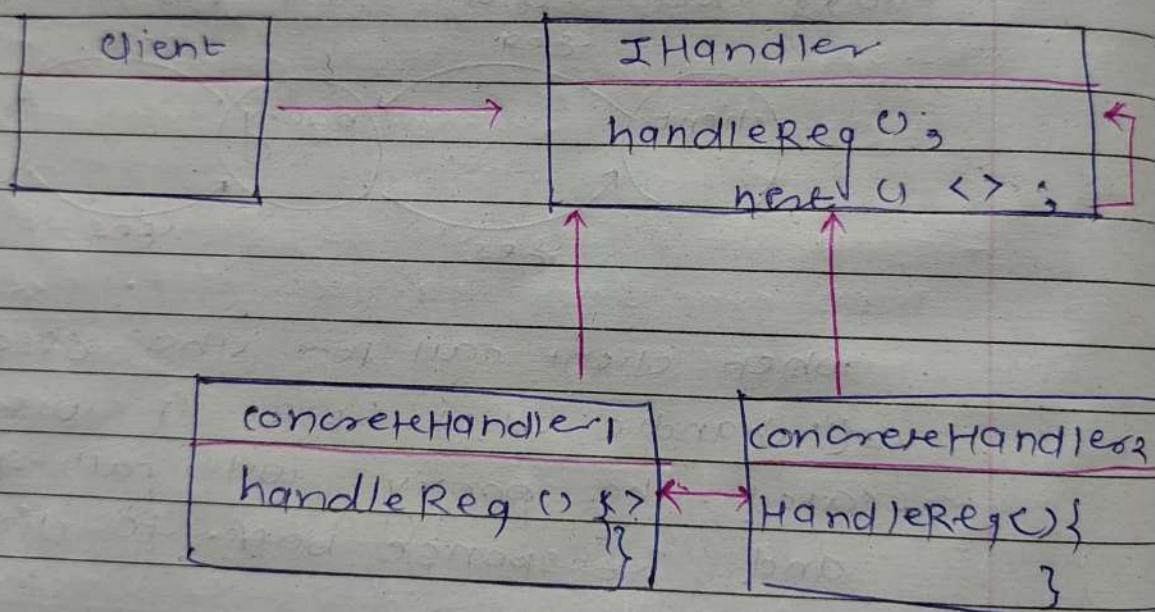 Client
IHandler
handleReq ();
next () <> ;
concreteHandler1
handleReq () {
}
concreteHandler2
HandleReq(){
}